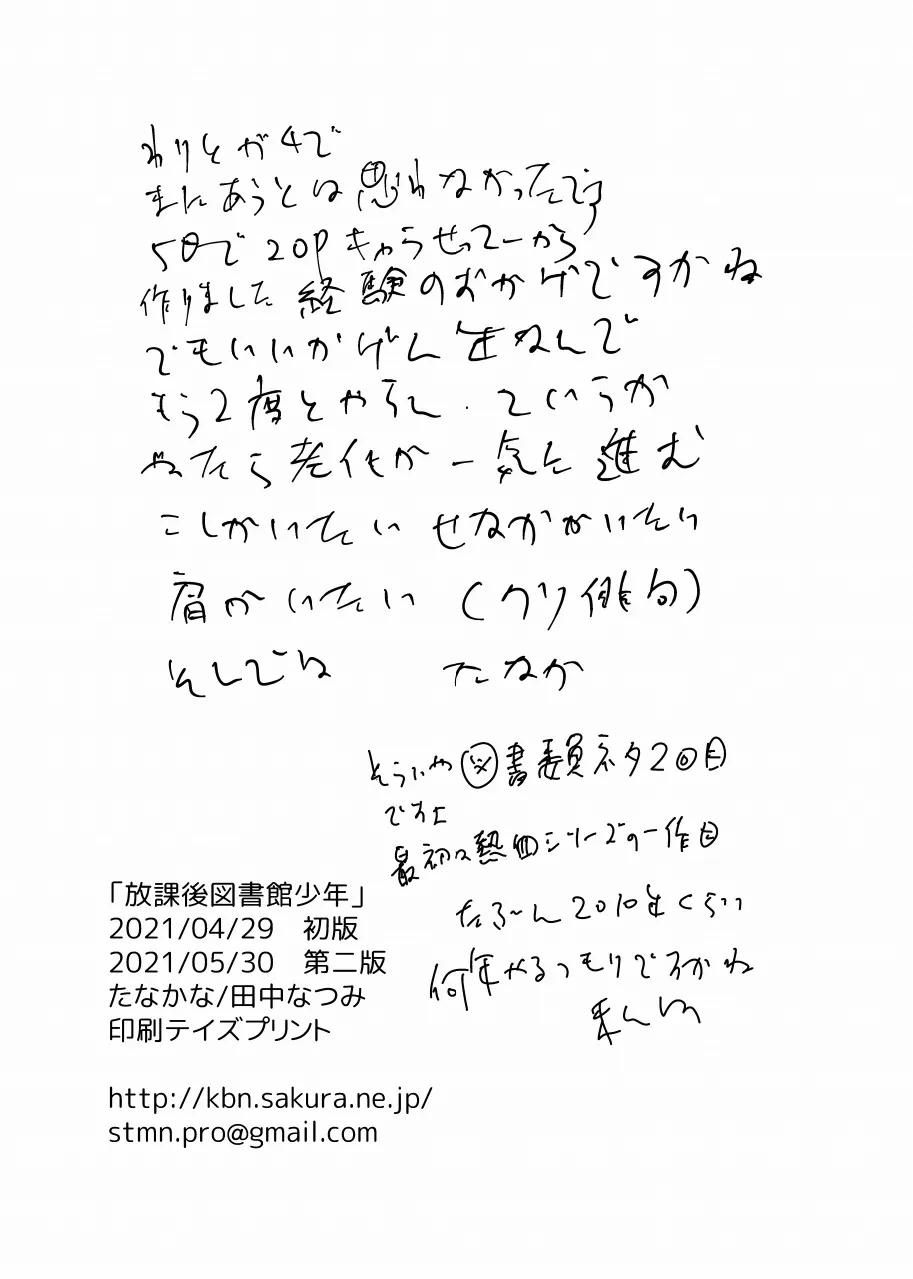 わりとガチで
まにあうとは思わなかったです
5日で20Pキャラせってーから
作りました経験のおかげですかね
でもいいかげん年なんで
もう2度とやらん.ていうか
やったら老化が一気に進む
こしがいたい せなかがいたい
肩がいたい (クソ俳句)
そしでは たなか
そういや図書委員ネタ2回目
ですよ
最初は熱血シリーズの一作目
たぶーん2010年くらい
何年やるつもりですかね
「放課後図書館少年」
2021/04/29 初版
2021/05/30 第二版
たなかな/田中なつみ
印刷テイズプリント
http://kbn.sakura.ne.jp/
stmn.pro@gmail.com